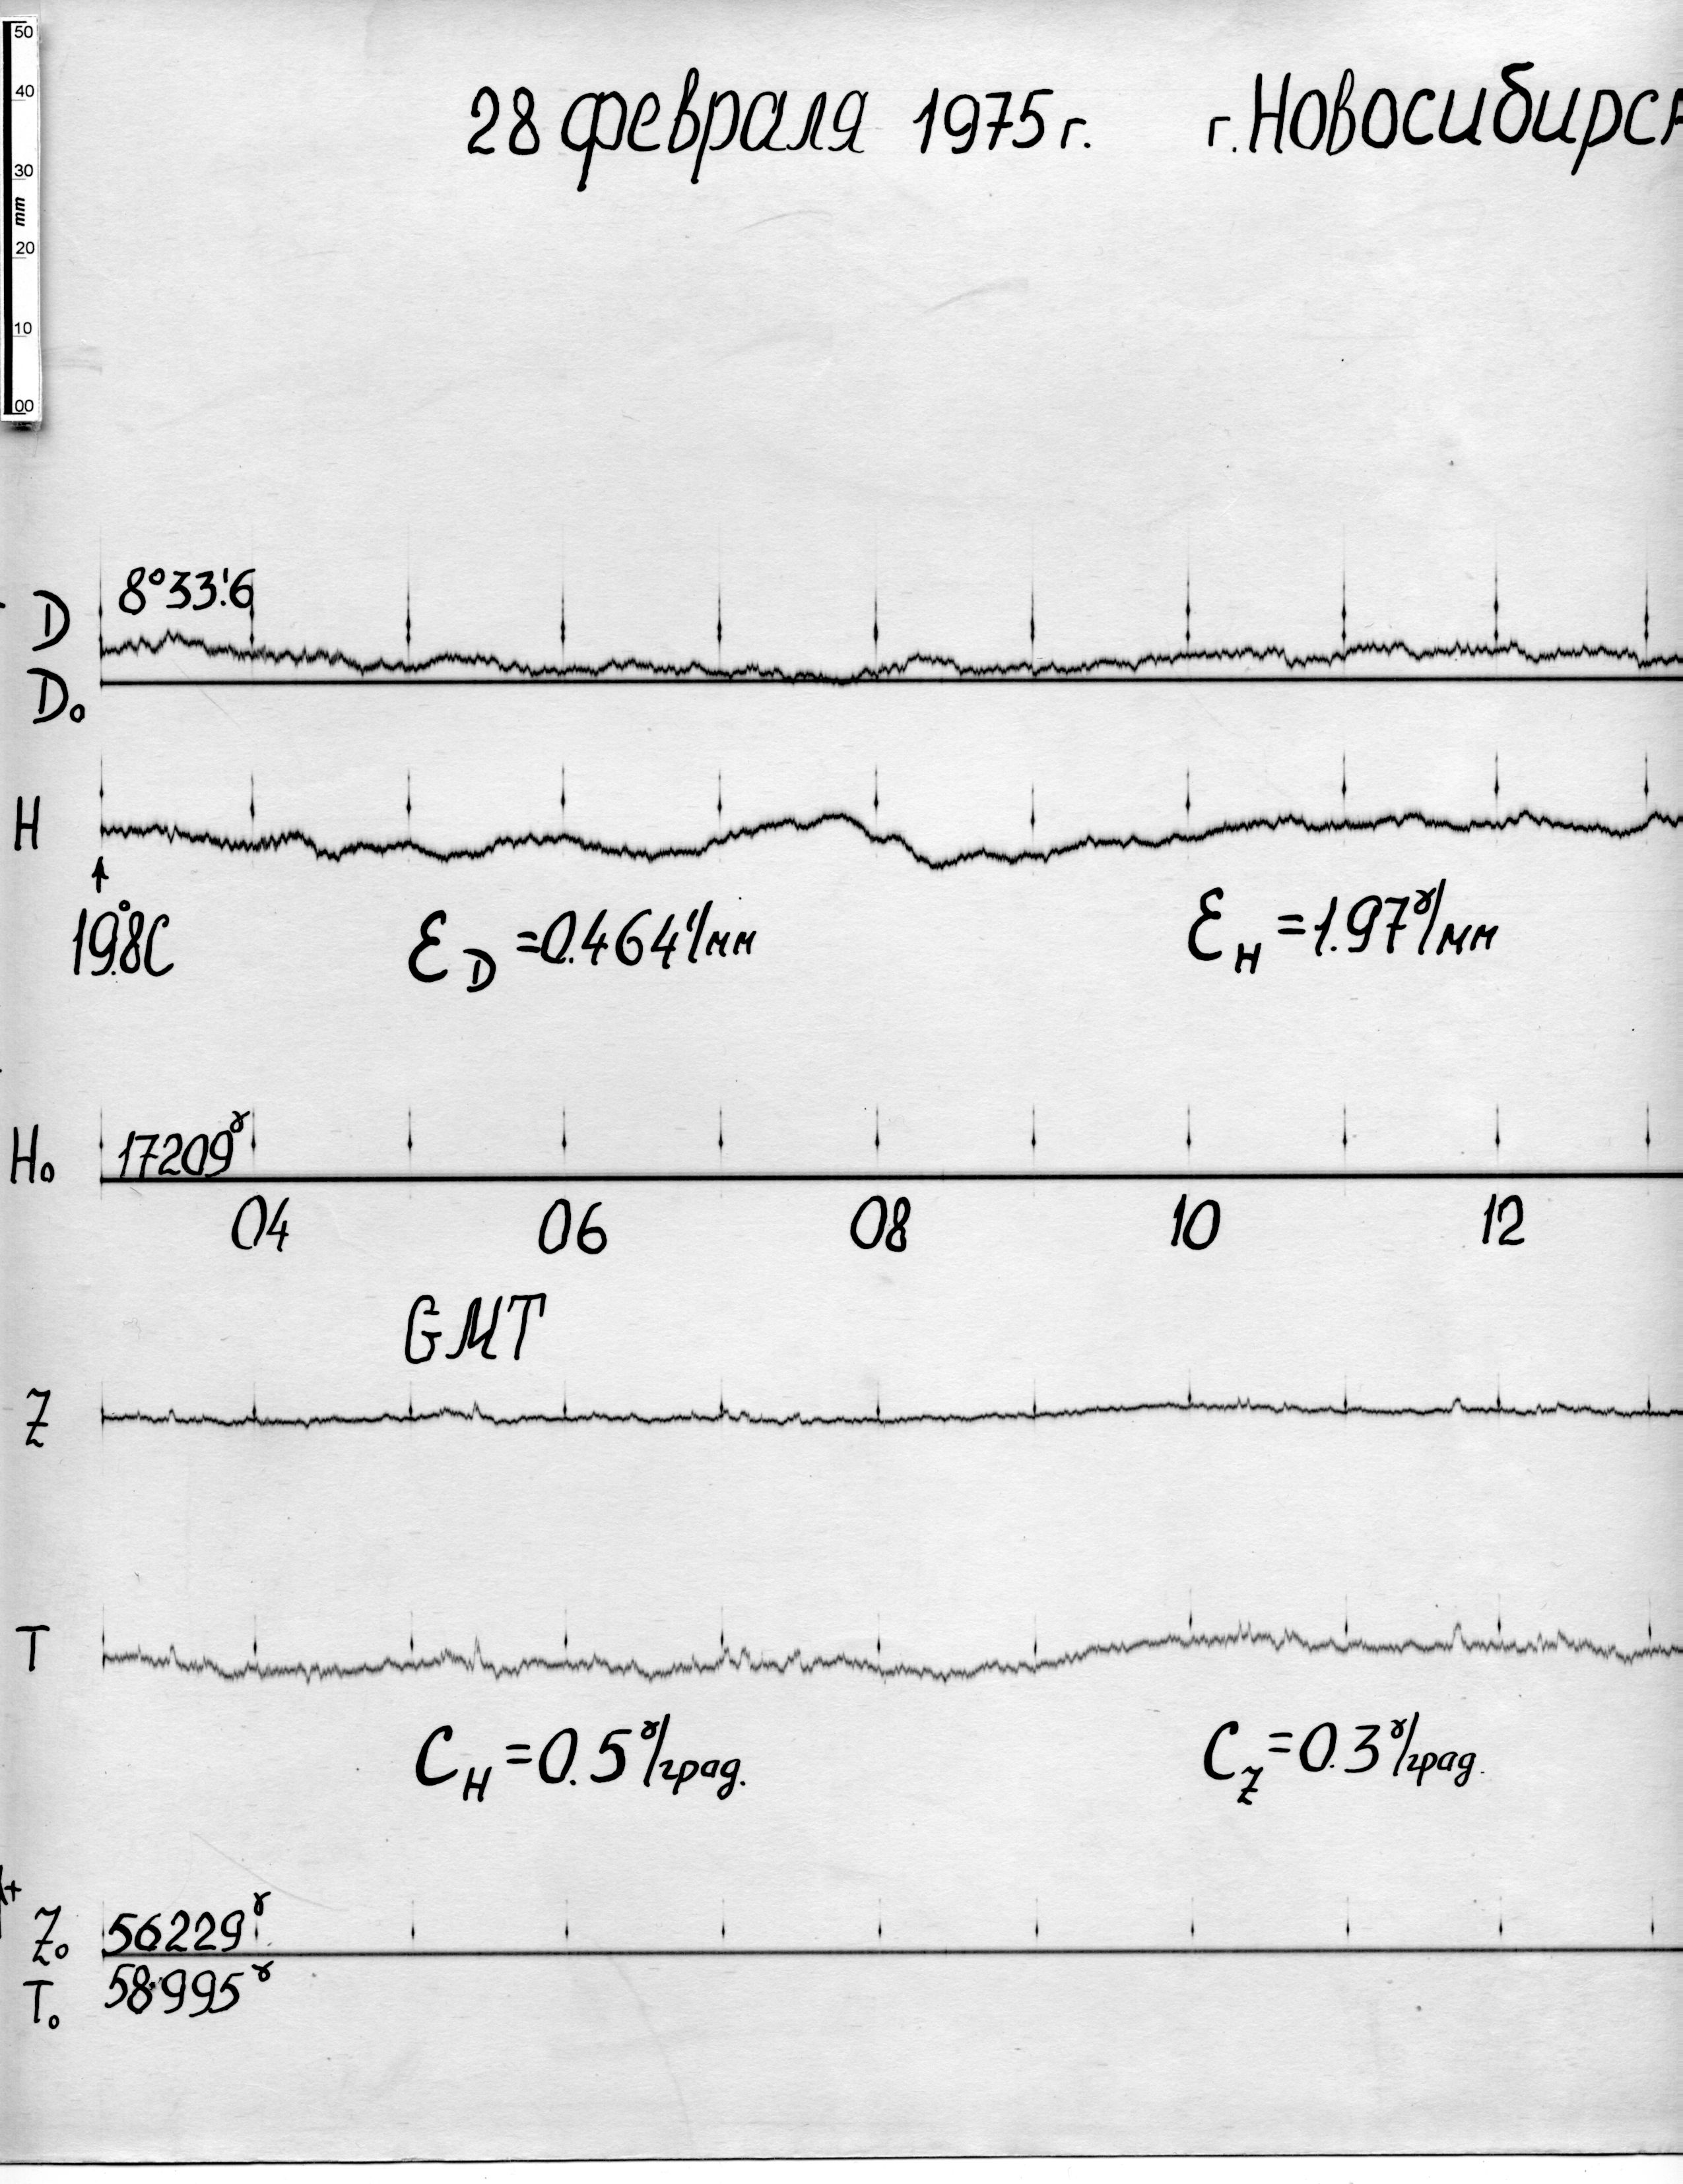 50
40
30
mm
20
10
00
28 февраля 1975 г. г. Новосибирск
D 8°33.'6
D₀
H
↑
19.°8C
ℰ_D = 0.464'/мм ℰ_H = 1.97ᵞ/мм
H₀ 17209ᵞ
04 06 08 10 12
GMT
Z
T
C_H = 0.5ᵞ/град. C_Z = 0.3ᵞ/град.
Z₀ 56229ᵞ
T₀ 58995ᵞ